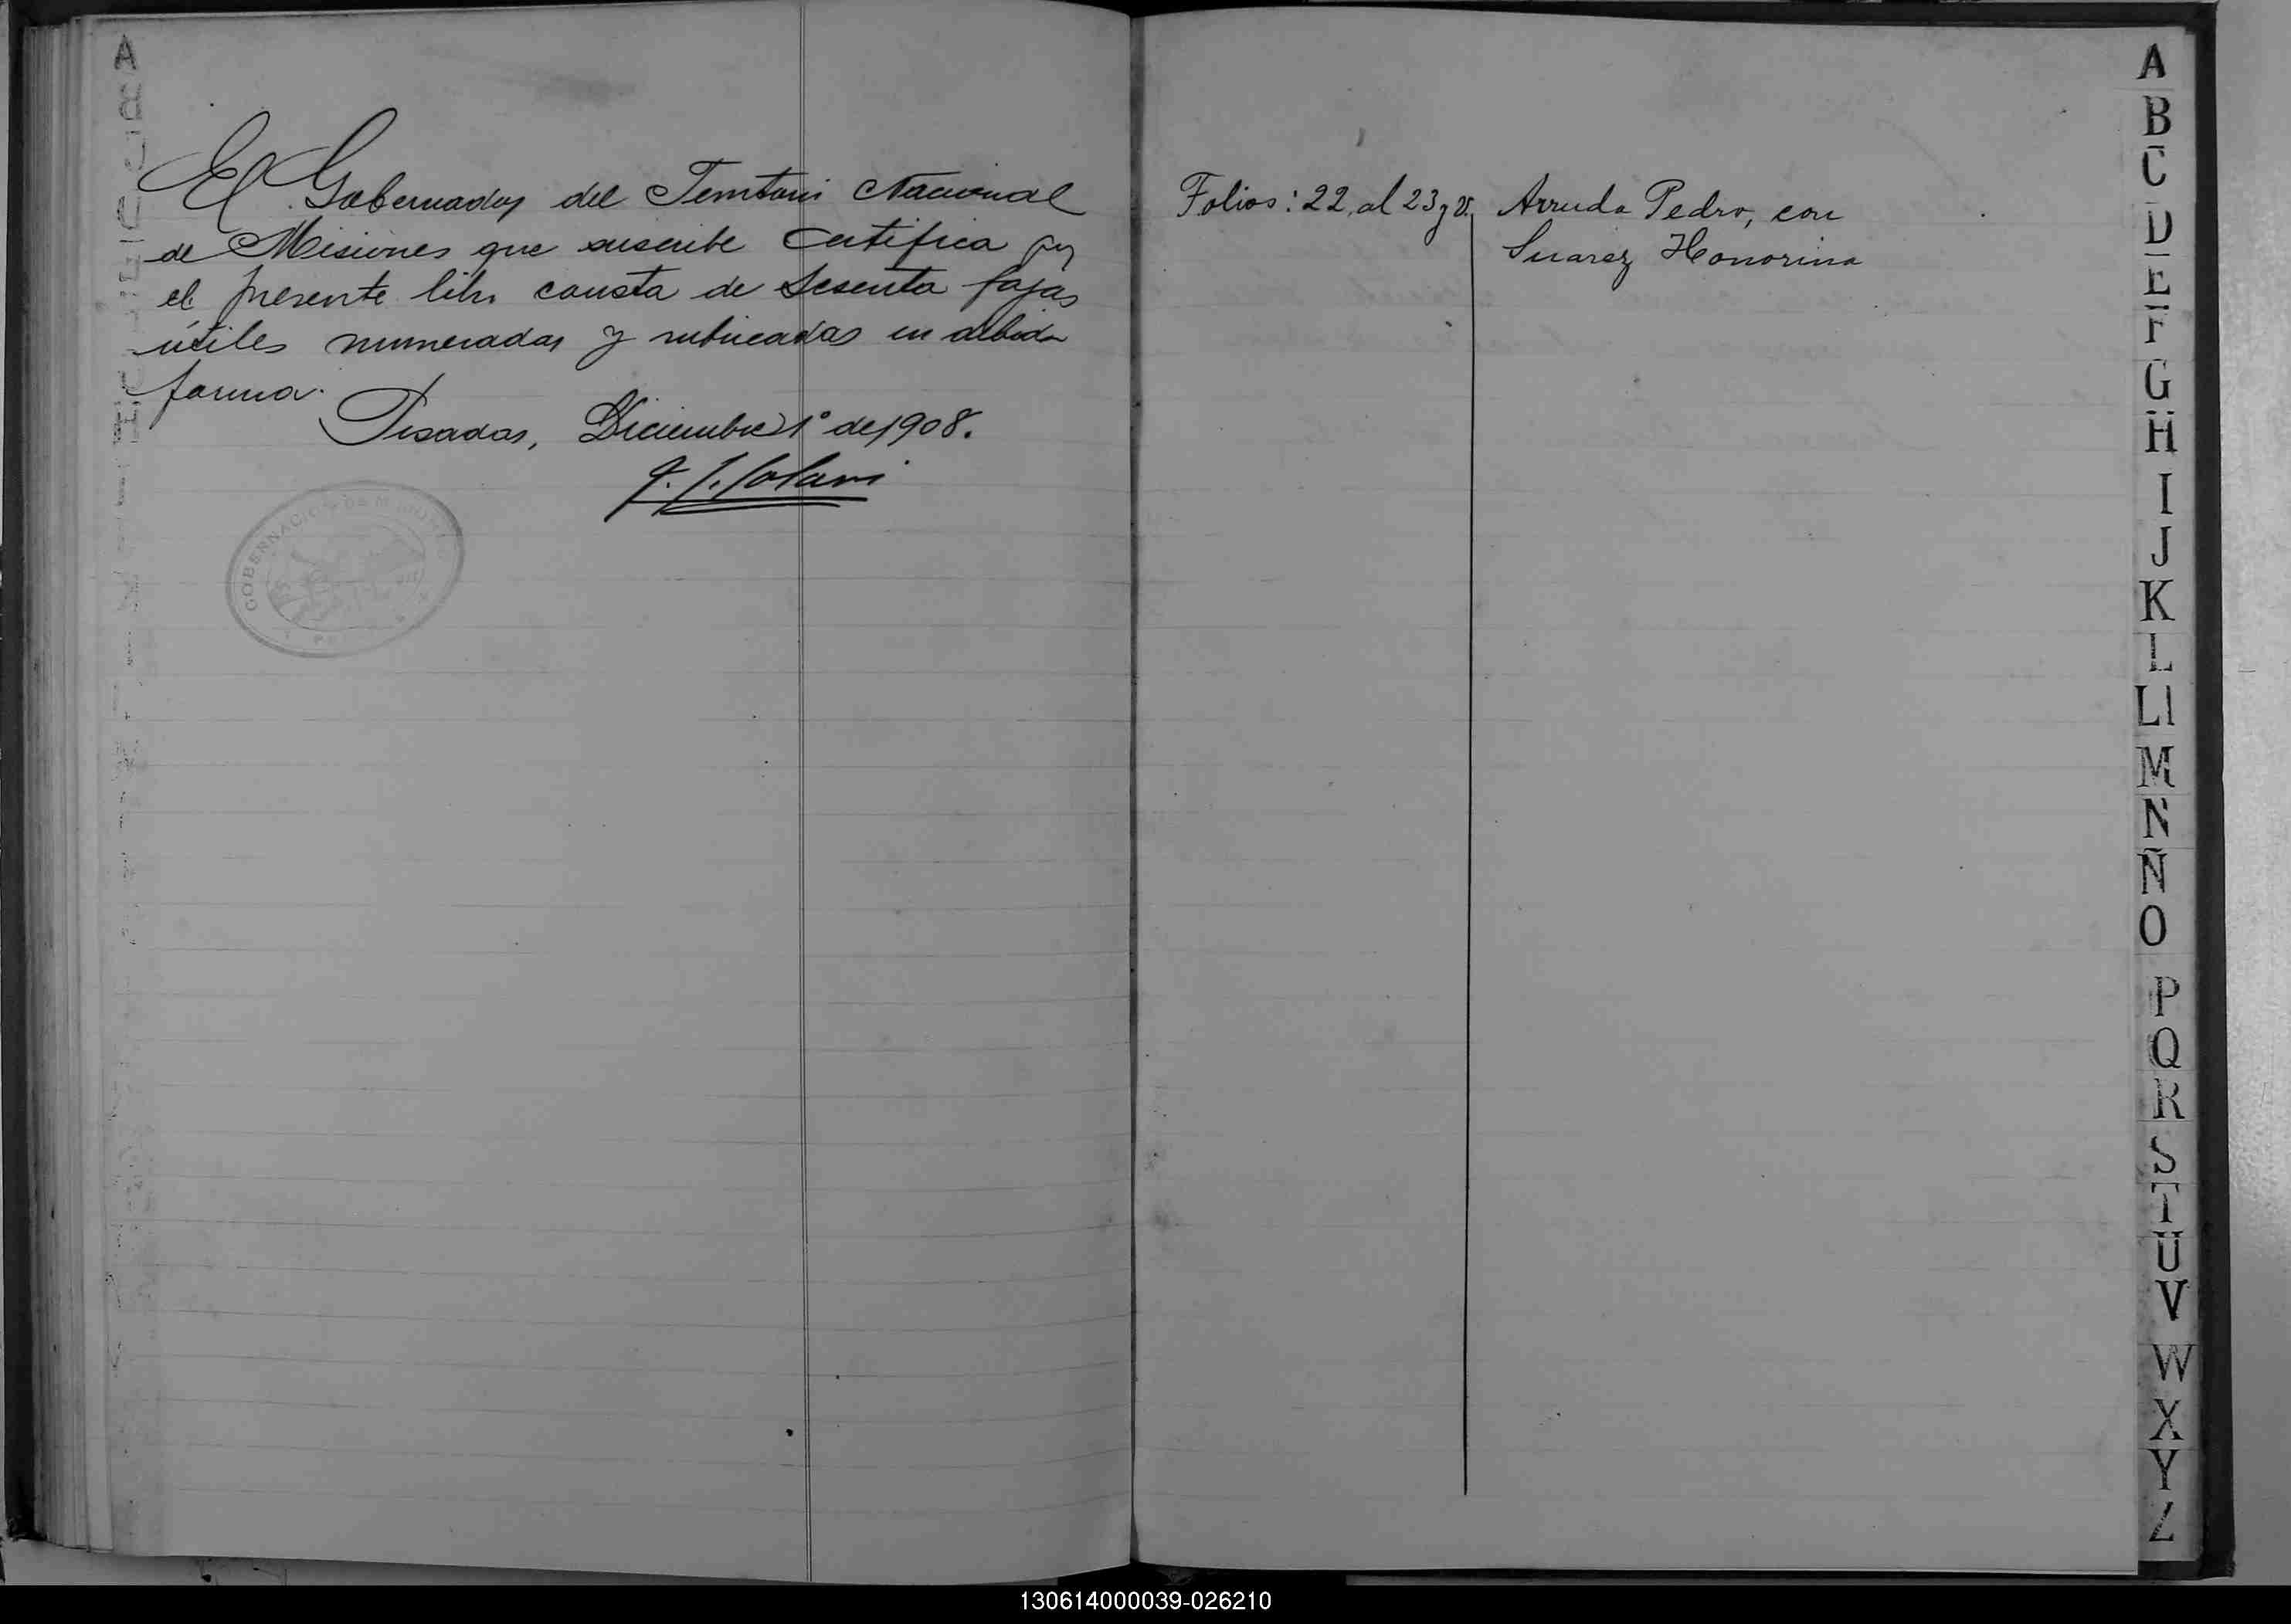 A
El Gobernador del Territorio Nacional
de Misiones que suscribe Certifica que
el presente libro consta de sesenta fojas
útiles numeradas y rubricadas en debida
forma.
Posadas, Diciembre 1º de 1908.
GOBERNACION DE MISIONES
Folios: 22, al 23 y v. Arruda Pedro, con
Suarez Honorina
A
B
C
D
E
F
G
H
I
J
K
L
Ll
M
N
Ñ
O
P
Q
R
S
T
U
V
W
X
Y
Z
130614000039-026210